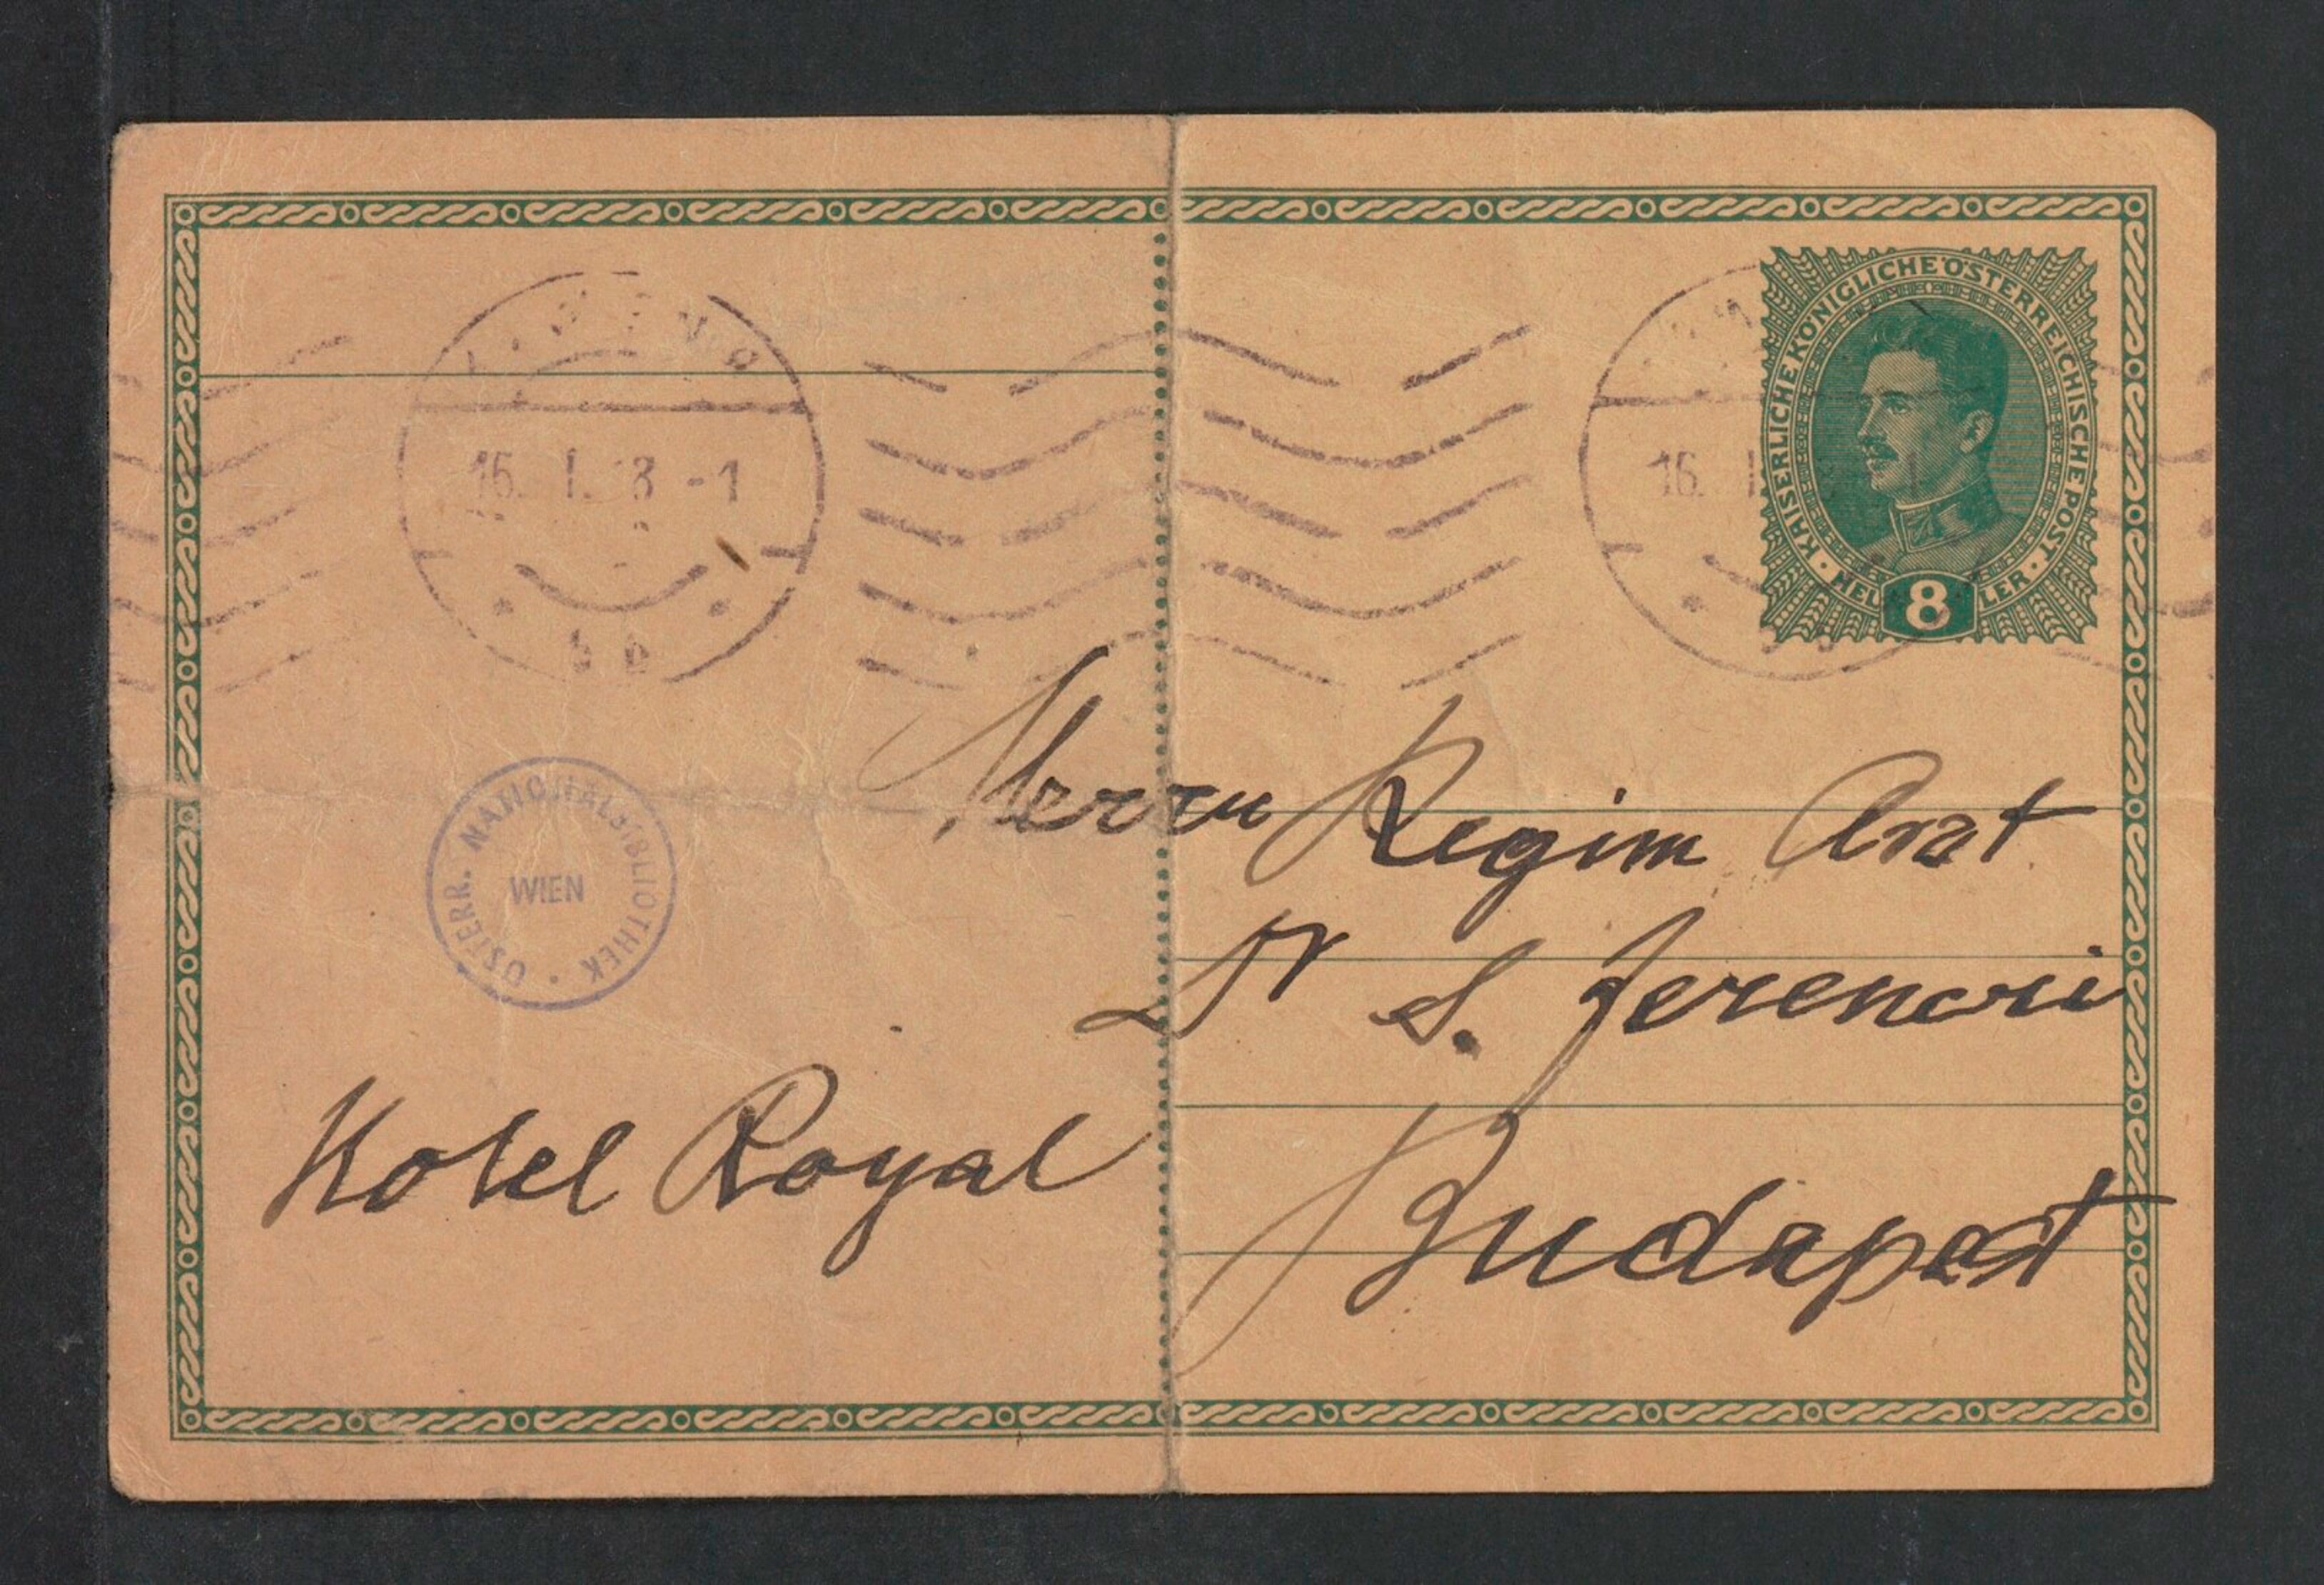 16. I. 18 - 1
16. I
KAISERLICHE KÖNIGLICHE ÖSTERREICHISCHE POST
HELLER
8
ÖSTERR. NATIONALBIBLIOTHEK
WIEN
Herrn Regim Arzt
Dr S. Ferenczi
Hotel Royal
Budapest